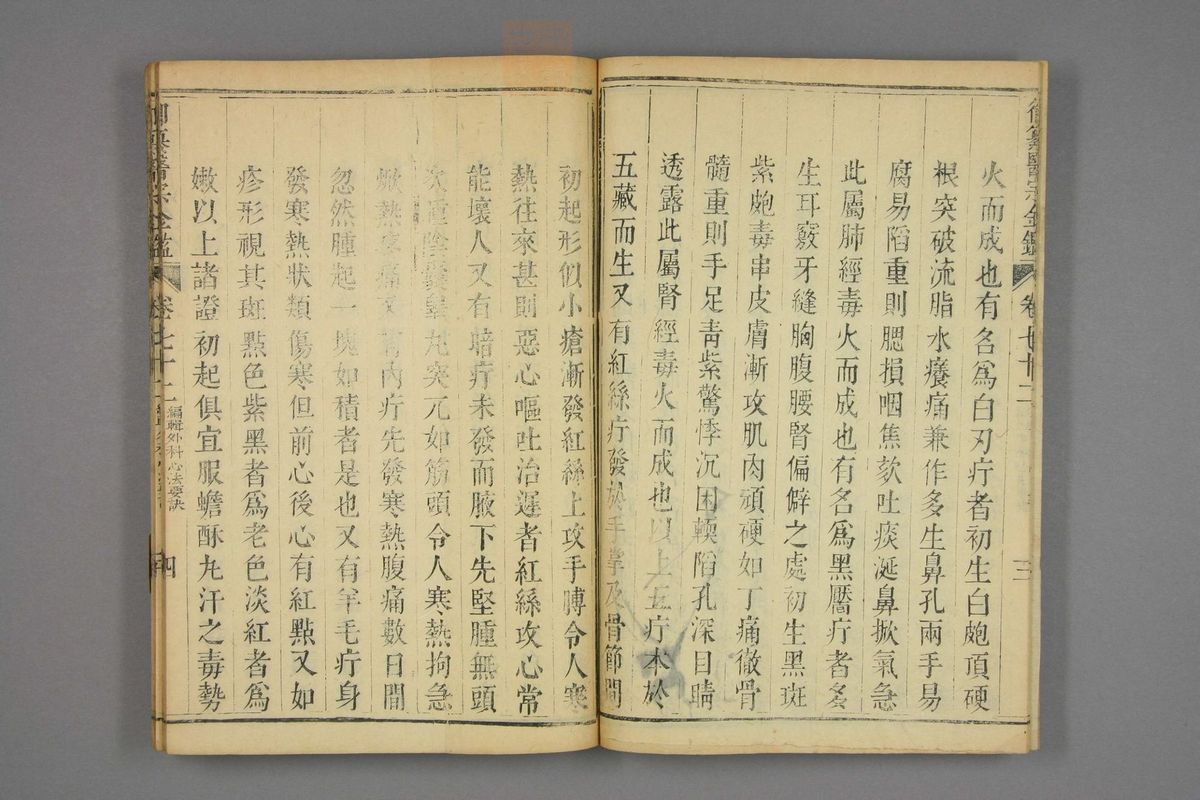 御纂醫宗金鑑
卷七十二
三
火而成也有名為白刃疔者初生白皰頂硬
根突破流脂水癢痛兼作多生鼻孔兩手易
腐易䧟重則腮損咽焦欬吐痰涎鼻掀氣急
此屬肺經毒火而成也有名為黑靨疔者多
生耳竅牙縫胸腹腰腎偏僻之處初生黑斑
紫皰毒串皮膚漸攻肌肉頑硬如丁痛徹骨
髓重則手足青紫驚悸沉困輭䧟孔深目睛
透露此屬腎經毒火而成也以上五疔本於
五藏而生又有紅絲疔發於手掌及骨節間
初起形似小瘡漸發紅絲上攻手膊令人寒
熱往來甚則惡心嘔吐治遲者紅絲攻心常
能壞人又有暗疔未發而腋下先堅腫無頭
次腫陰囊睪丸突兀如筋頭令人寒熱拘急
焮熱疼痛又有內疔先發寒熱腹痛數日間
忽然腫起一塊如積者是也又有羊毛疔身
發寒熱狀類傷寒但前心後心有紅點又如
疹形視其斑點色紫黑者為老色淡紅者為
嫩以上諸證初起俱宜服蟾酥丸汗之毒勢
御纂醫宗金鑑
卷七十二
編輯外科心法要訣
四